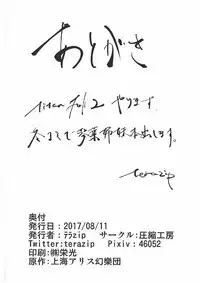 あとがき
titan fall 2 やります。
琴葉姉妹本出します。
terazip
奥付
発行日：2017/08/11
発行者：ﾃﾗzip　サークル：圧縮工房
Twitter:terazip　Pixiv：46052
印刷：㈱栄光
原作：上海アリス幻樂団